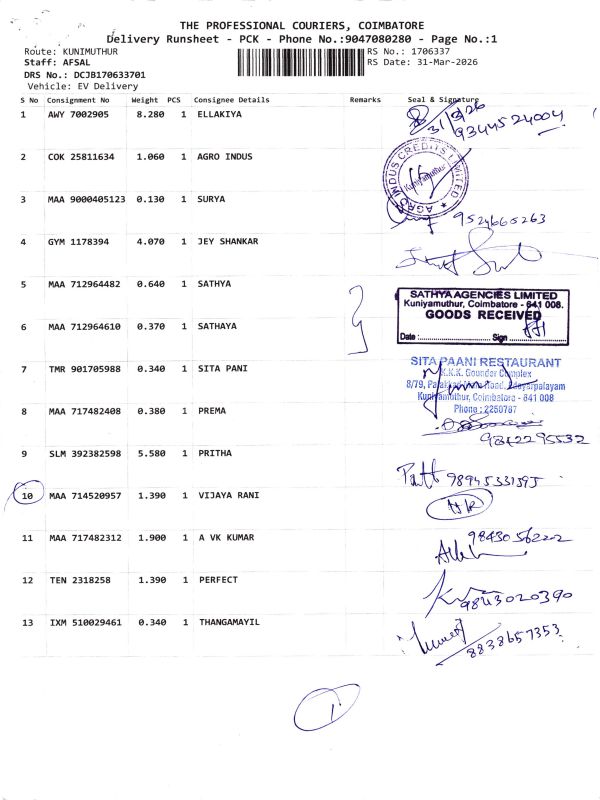 THE PROFESSIONAL COURIERS, COIMBATORE
Delivery Runsheet - PCK - Phone No.:9047080280 - Page No.:1
Route: KUNIMUTHUR RS No.: 1706337
Staff: AFSAL RS Date: 31-Mar-2026
DRS No.: DCJB170633701
Vehicle: EV Delivery
S No Consignment No Weight PCS Consignee Details Remarks Seal & Signature
1 AWY 7002905 8.280 1 ELLAKIYA
9344524004
2 COK 25811634 1.060 1 AGRO INDUS
AGRO INDUS CREDITS LIMITED
Kuniyamuthur
3 MAA 9000405123 0.130 1 SURYA
9524665263
4 GYM 1178394 4.070 1 JEY SHANKAR
5 MAA 712964482 0.640 1 SATHYA
SATHYA AGENCIES LIMITED
Kuniyamuthur, Coimbatore - 641 008.
GOODS RECEIVED
Date Sign
6 MAA 712964610 0.370 1 SATHAYA
7 TMR 901705988 0.340 1 SITA PANI
SITA PAANI RESTAURANT
K.K.K. Gounder Complex
8/79, Palakkad Main Road, Edayarpalayam
Kuniyamuthur, Coimbatore - 641 008
Phone : 2250787
8 MAA 717482408 0.380 1 PREMA
9842295532
9 SLM 392382598 5.580 1 PRITHA
10 MAA 714520957 1.390 1 VIJAYA RANI
11 MAA 717482312 1.900 1 A VK KUMAR
12 TEN 2318258 1.390 1 PERFECT
9843020390
13 IXM 510029461 0.340 1 THANGAMAYIL
8838657353
1